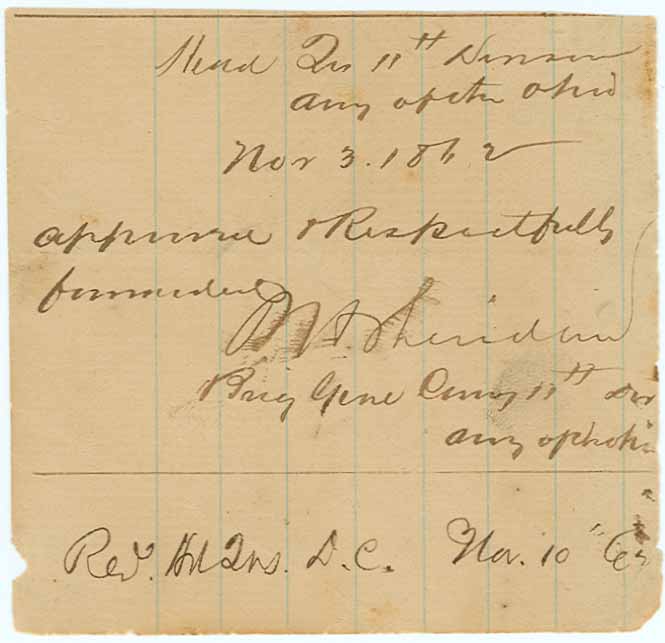 Head Qrs 11th Division
Army of the Ohio
Nov 3. 1862
approved & Respectfully
forwarded
P H Sheridan
Brig Genl Comg 11th Div
Army of the Ohio
Recd. Hd Qrs. D.C. Nov. 10" 62